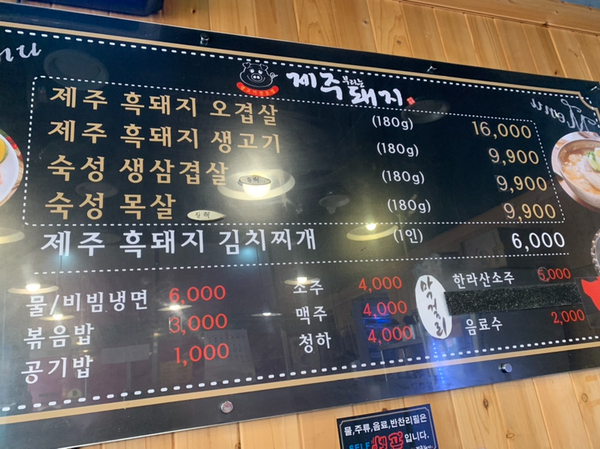 제주 부리는 돼지
제주 흑돼지 오겹살 (180g) 16,000
제주 흑돼지 생고기 (180g) 9,900
숙성 생삼겹살 (180g) 9,900
숙성 목살 (180g) 9,900
제주 흑돼지 김치찌개 (1인) 6,000
물/비빔냉면 6,000
볶음밥 3,000
공기밥 1,000
소주 4,000
맥주 4,000
청하 4,000
막걸리
한라산소주 5,000
음료수 2,000
물,주류,음료,반찬리필은
SELF 셀프입니다.